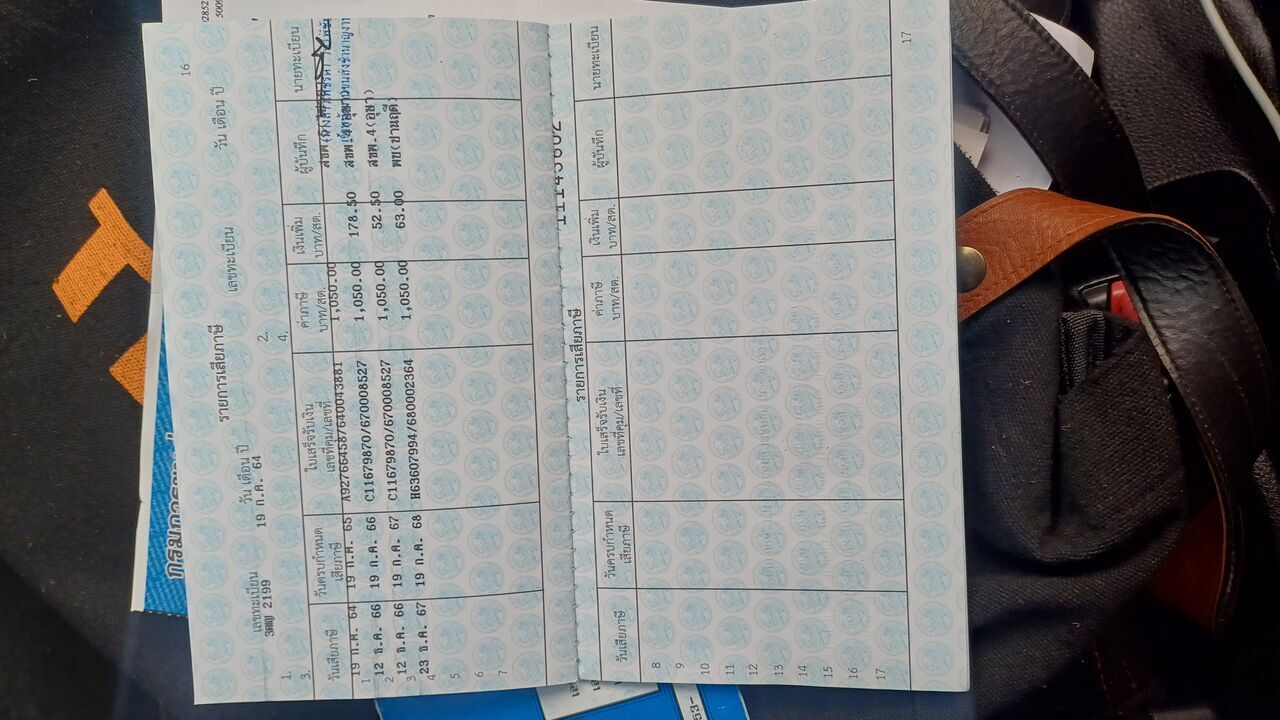 16
รายการเสียภาษี
เลขทะเบียน วัน เดือน ปี เลขทะเบียน วัน เดือน ปี
1. 3ฒญ 2199 19 ก.ค. 64 2.
3. 4.
วันเสียภาษี วันครบกำหนด เสียภาษี ใบเสร็จรับเงิน เลขที่คุม/เลขที่ ค่าภาษี บาท/สต. เงินเพิ่ม บาท/สต. ผู้บันทึก นายทะเบียน
1 19 ก.ค. 64 19 ก.ค. 65 A92766458/640043881 1,050.00
2 12 ธ.ค. 66 19 ก.ค. 66 C11679870/670008527 1,050.00 178.50 สขพ.4(อุษา)
3 12 ธ.ค. 66 19 ก.ค. 67 C11679870/670008527 1,050.00 52.50 สขพ.4(อุษา)
4 23 ธ.ค. 67 19 ก.ค. 68 H63607994/680002364 1,050.00 63.00 พข(ปานฤดี)
5
6
7
รายการเสียภาษี
วันเสียภาษี วันครบกำหนด เสียภาษี ใบเสร็จรับเงิน เลขที่คุม/เลขที่ ค่าภาษี บาท/สต. เงินเพิ่ม บาท/สต. ผู้บันทึก นายทะเบียน
8
9
10
11
12
13
14
15
16
17
17
53-